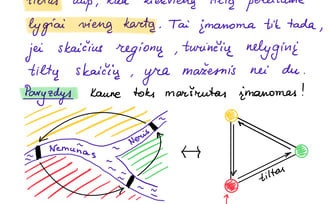 lygiai vieną kartą. Tai įmanoma tik tada,
jei skaičius regionų, turinčių nelyginį
tiltų skaičių, yra mažesnis nei du.
Pavyzdys Kaune toks maršrutas įmanomas!
Neris
Nemunas
tiltas